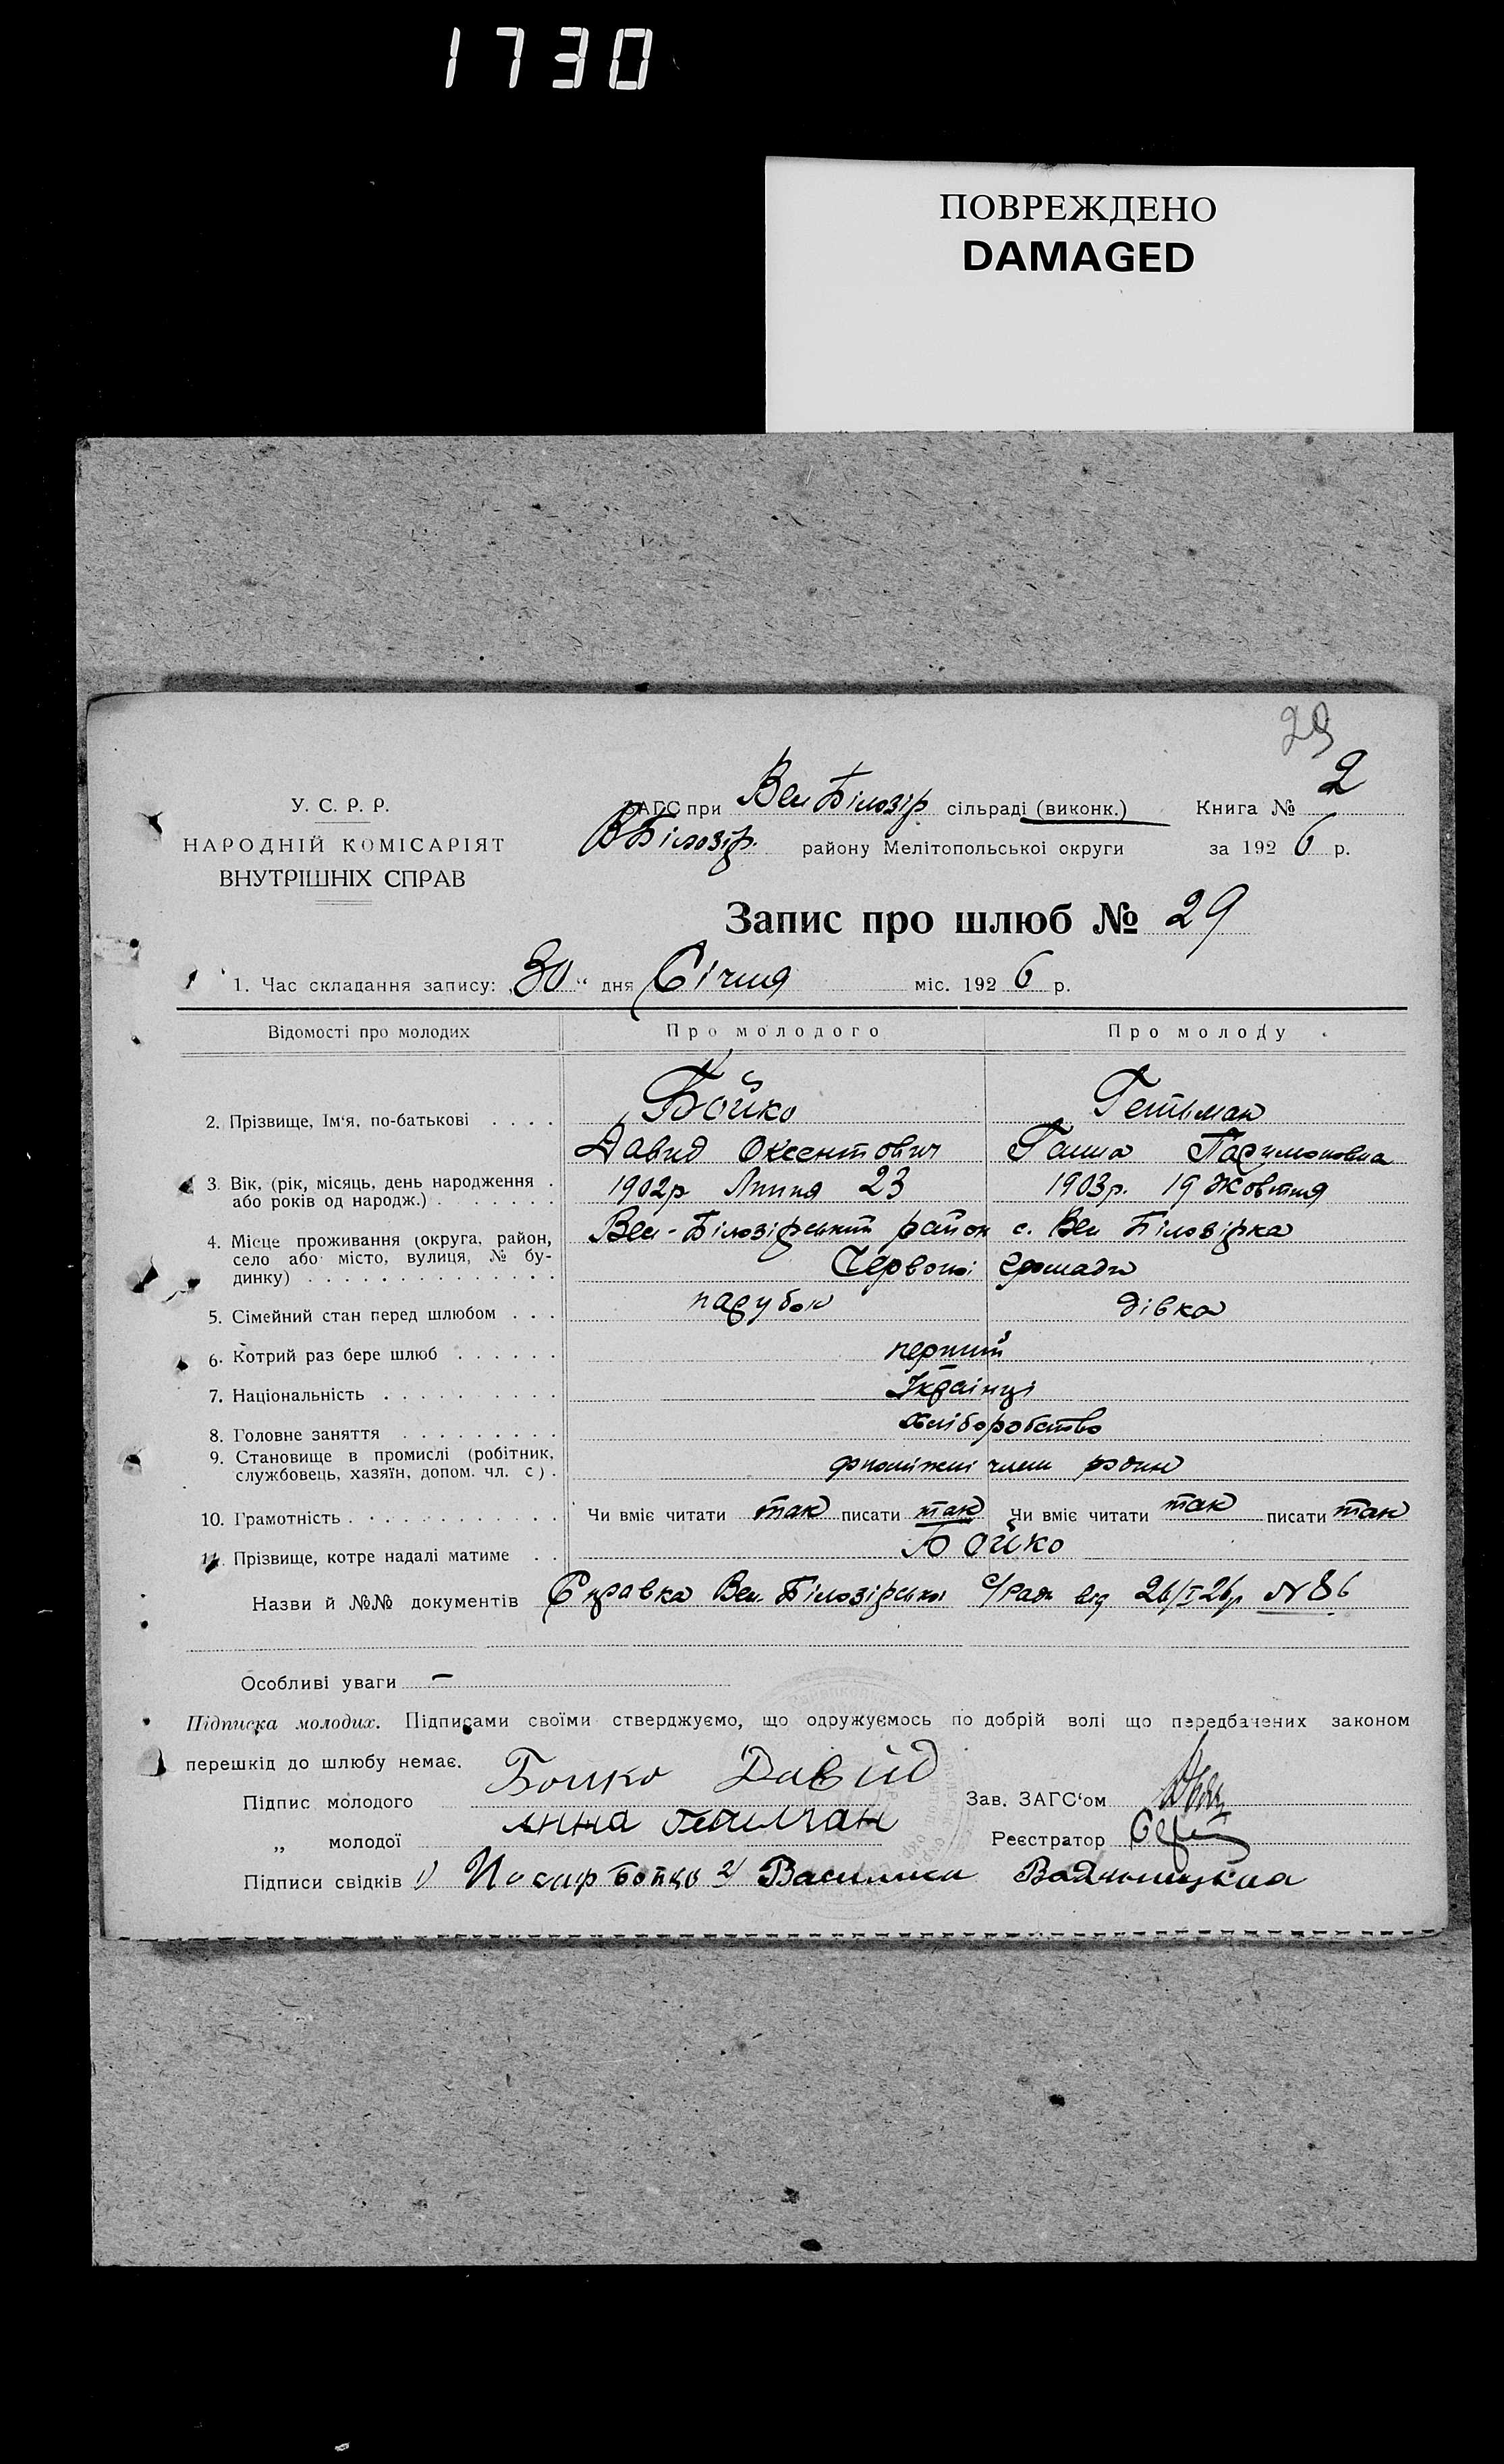 1730
ПОВРЕЖДЕНО
DAMAGED
29
У. С. Р. Р.
НАРОДНІЙ КОМІСАРІЯТ
ВНУТРІШНІХ СПРАВ
ЗАГС при Вел Білозір сільраді (виконк.) Книга № 2
В Білозір. району Мелітопольської округи за 1926 р.
Запис про шлюб № 29
1. Час складання запису: „30“ дня Січня міс. 1926 р.
Відомості про молодих Про молодого Про молоду
2. Прізвище, Ім'я, по-батькові . . . . Бойко Гетьман
Давид Оксентович Ганна Паримоновна
3. Вік, (рік, місяць, день народження . або років од народж.) . . . . . 1902р Липня 23 1903р. 19 Жовтня
4. Місце проживання (округа, район, Вел-Білозірський район с. Вел Білозірка
село або місто, вулиця, № бу-
динку) . . . . . . . . . . . . . . Червоної громади
5. Сімейний стан перед шлюбом . . . парубок дівка
6. Котрий раз бере шлюб . . . . . . перший
7. Національність . . . . . . . . . . Українці
8. Головне заняття . . . . . . . . . хліборобство
9. Становище в промислі (робітник,
службовець, хазяїн, допом. чл. с.) . допоміжні члени родин
10. Грамотність . . . . . . . . . . . . Чи вміє читати так писати так Чи вміє читати так писати так
11. Прізвище, котре надалі матиме . . Бойко
Назви й №№ документів Справка Вел. Білозірської с/ради від 26/I 26р N 86
Особливі уваги —
Підписка молодих. Підписами своїми стверджуємо, що одружуємось по добрій волі що передбачених законом
перешкід до шлюбу немає.
Підпис молодого Бойко Давид Зав. ЗАГС'ом
„ молодої Анна Гетьман Реєстратор
Підписи свідків 1) Иосиф Бойко 2)